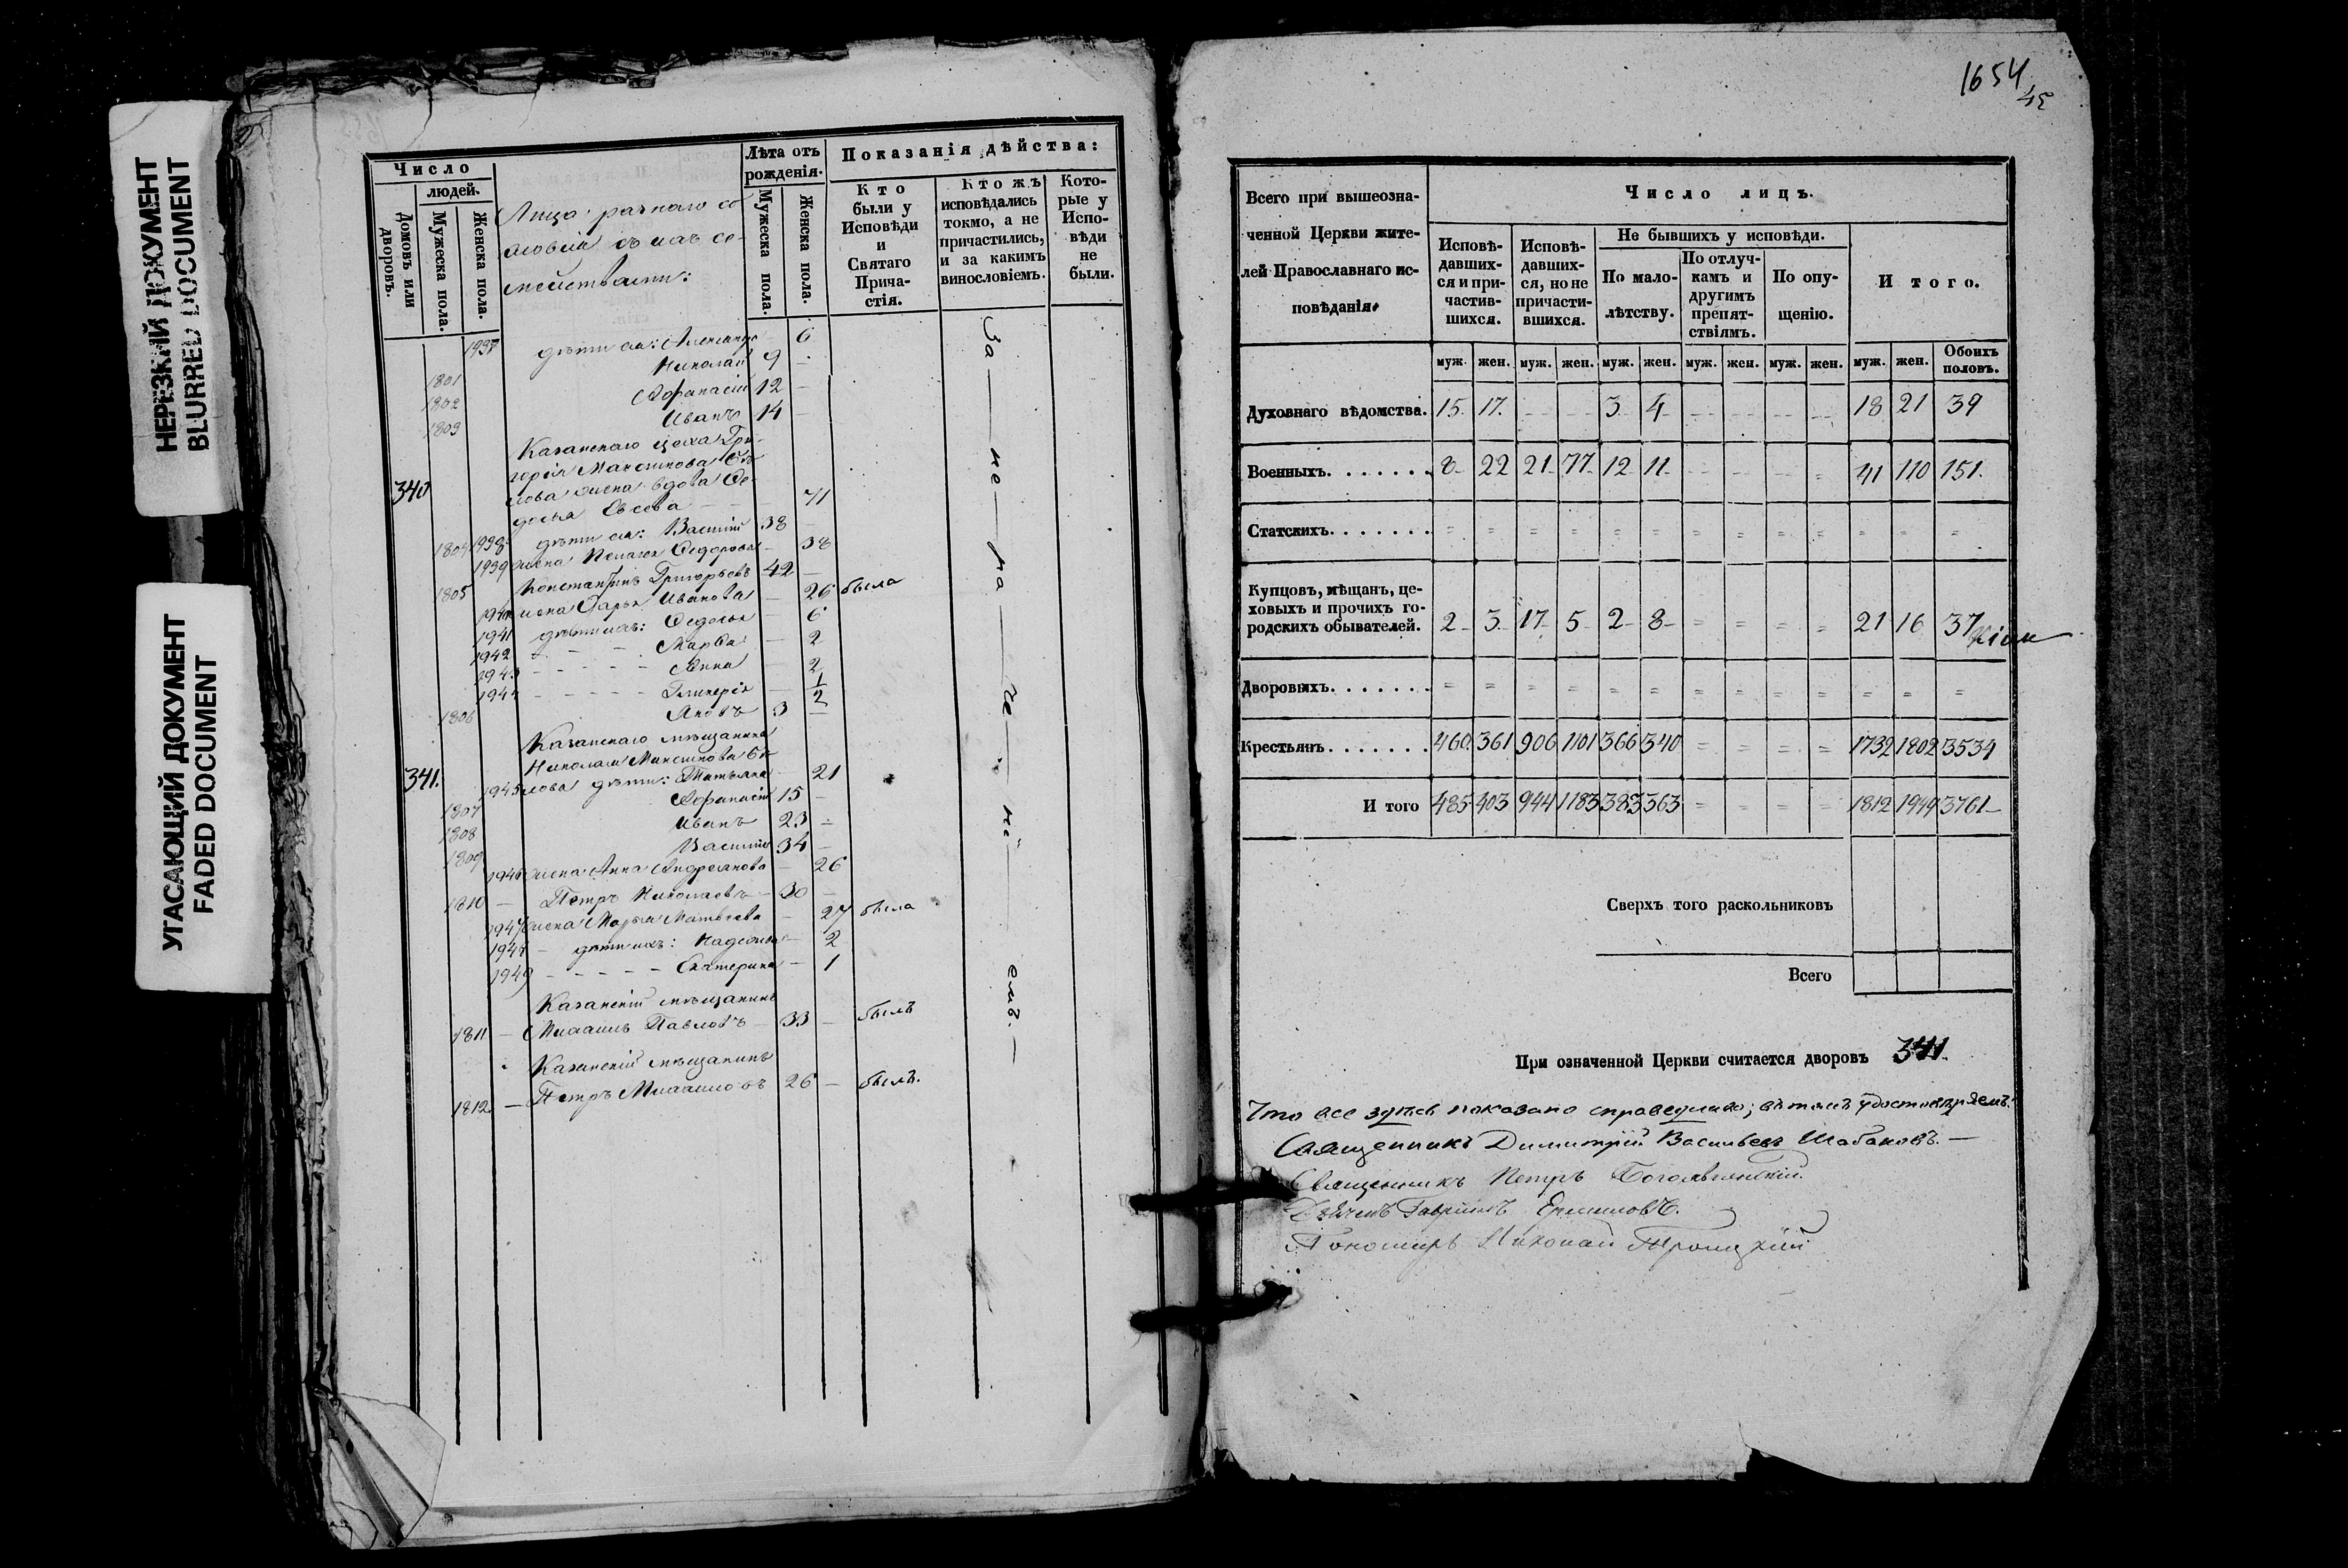 НЕРЕЗКИЙ ДОКУМЕНТ
BLURRED DOCUMENT
УГАСАЮЩИЙ ДОКУМЕНТ
FADED DOCUMENT
Число
людей.
Домовъ или дворовъ.
Мужеска пола.
Женска пола.
Лица разнаго со
словія съ ихъ се-
мействами:
Лѣта отъ рожденія.
Мужеска пола.
Женска пола.
Показанія дѣйства:
Кто были у Исповѣди и Святаго Прича-стія.
Кто жъ исповѣдались токмо, а не причастились, и за какимъ винословіемъ.
Кото-рые у Испо-вѣди не были.
дѣти ея: 6
1801 Николай 9 -
1802 Афанасій 12 -
1803 Иванъ 14 -
Казанскаго цеха Гри-
горія Максимова
340 жена вдова Ѳе-
досья 71
1804 1938 дѣти ея: Василій 38 -
1939 жена Пелагея Ѳедорова - 38
1805 Константинъ Григорьевъ 42 -
1940 жена Дарья Иванова - 26 была
1941 дѣти ихъ: Ѳедосья 6
1942 Марѳа - 2
1943 Анна 2
1944 Гликерія - 1/2
1806 Яковъ 3 -
Казанскаго мѣщанина
Николая Максимова
341. 1945 дѣти: Татьяна - 21
1807 Афанасій 15 -
1808 Иванъ 23 -
1809 Василій 34 -
1946 жена Анна Андреянова - 26
1810 - Петръ Николаевъ - 30 -
1947 жена Марья Матвѣева - 27 была
1948 - дѣти ихъ: Надежда - 2
1949 - Екатерина - 1
Казанскій мѣщанинъ
1811 - Михаилъ Павловъ - 33 - былъ
Казанскій мѣщанинъ
1812 - Петръ Михаиловъ 26 - былъ.
За — не — ні — емъ. —
1654
Всего при вышеозна-
ченной Церкви жите-
лей Православнаго ис-
повѣданія.
Число лицъ.
Исповѣ-давших-ся и при-частив-шихся.
Исповѣ-давших-ся, но не причасти-вшихся.
Не бывшихъ у исповѣди.
По мало-лѣтству.
По отлуч-камъ и другимъ препят-ствіямъ.
По опу-щенію.
И того.
муж. жен. муж. жен. муж. жен. муж. жен. муж. жен. муж. жен. Обоихъ половъ.
Духовнаго вѣдомства. 15 17 - - 3 4 - - - - 18 21 39
Военныхъ. 8 22 21 77 12 11 - - - = 41 110 151.
Статскихъ. = = = = = = = = = = = = =
Купцовъ, мѣщанъ, це-
ховыхъ и прочихъ го-
родскихъ обывателей. 2 3 17 5 2 8 = = = = 21 16 37
Дворовыхъ. = = = = = = = = = = = = =
Крестьянъ. 460 361 906 1101 366 340 = = = = 1732 1802 3534
И того 485 403 944 1183 383 363 = = = = 1812 1949 3761
Сверхъ того раскольниковъ
Всего
При означенной Церкви считается дворовъ 341.
Что все здѣсь показано справедливо; въ томъ удостовѣряемъ:
Священникъ Димитрій Васильевъ Шабановъ. —
Священникъ Петръ Богоявленскій.
Дьячекъ Гавріилъ Ермиловъ.
Пономарь Николай Троицкій